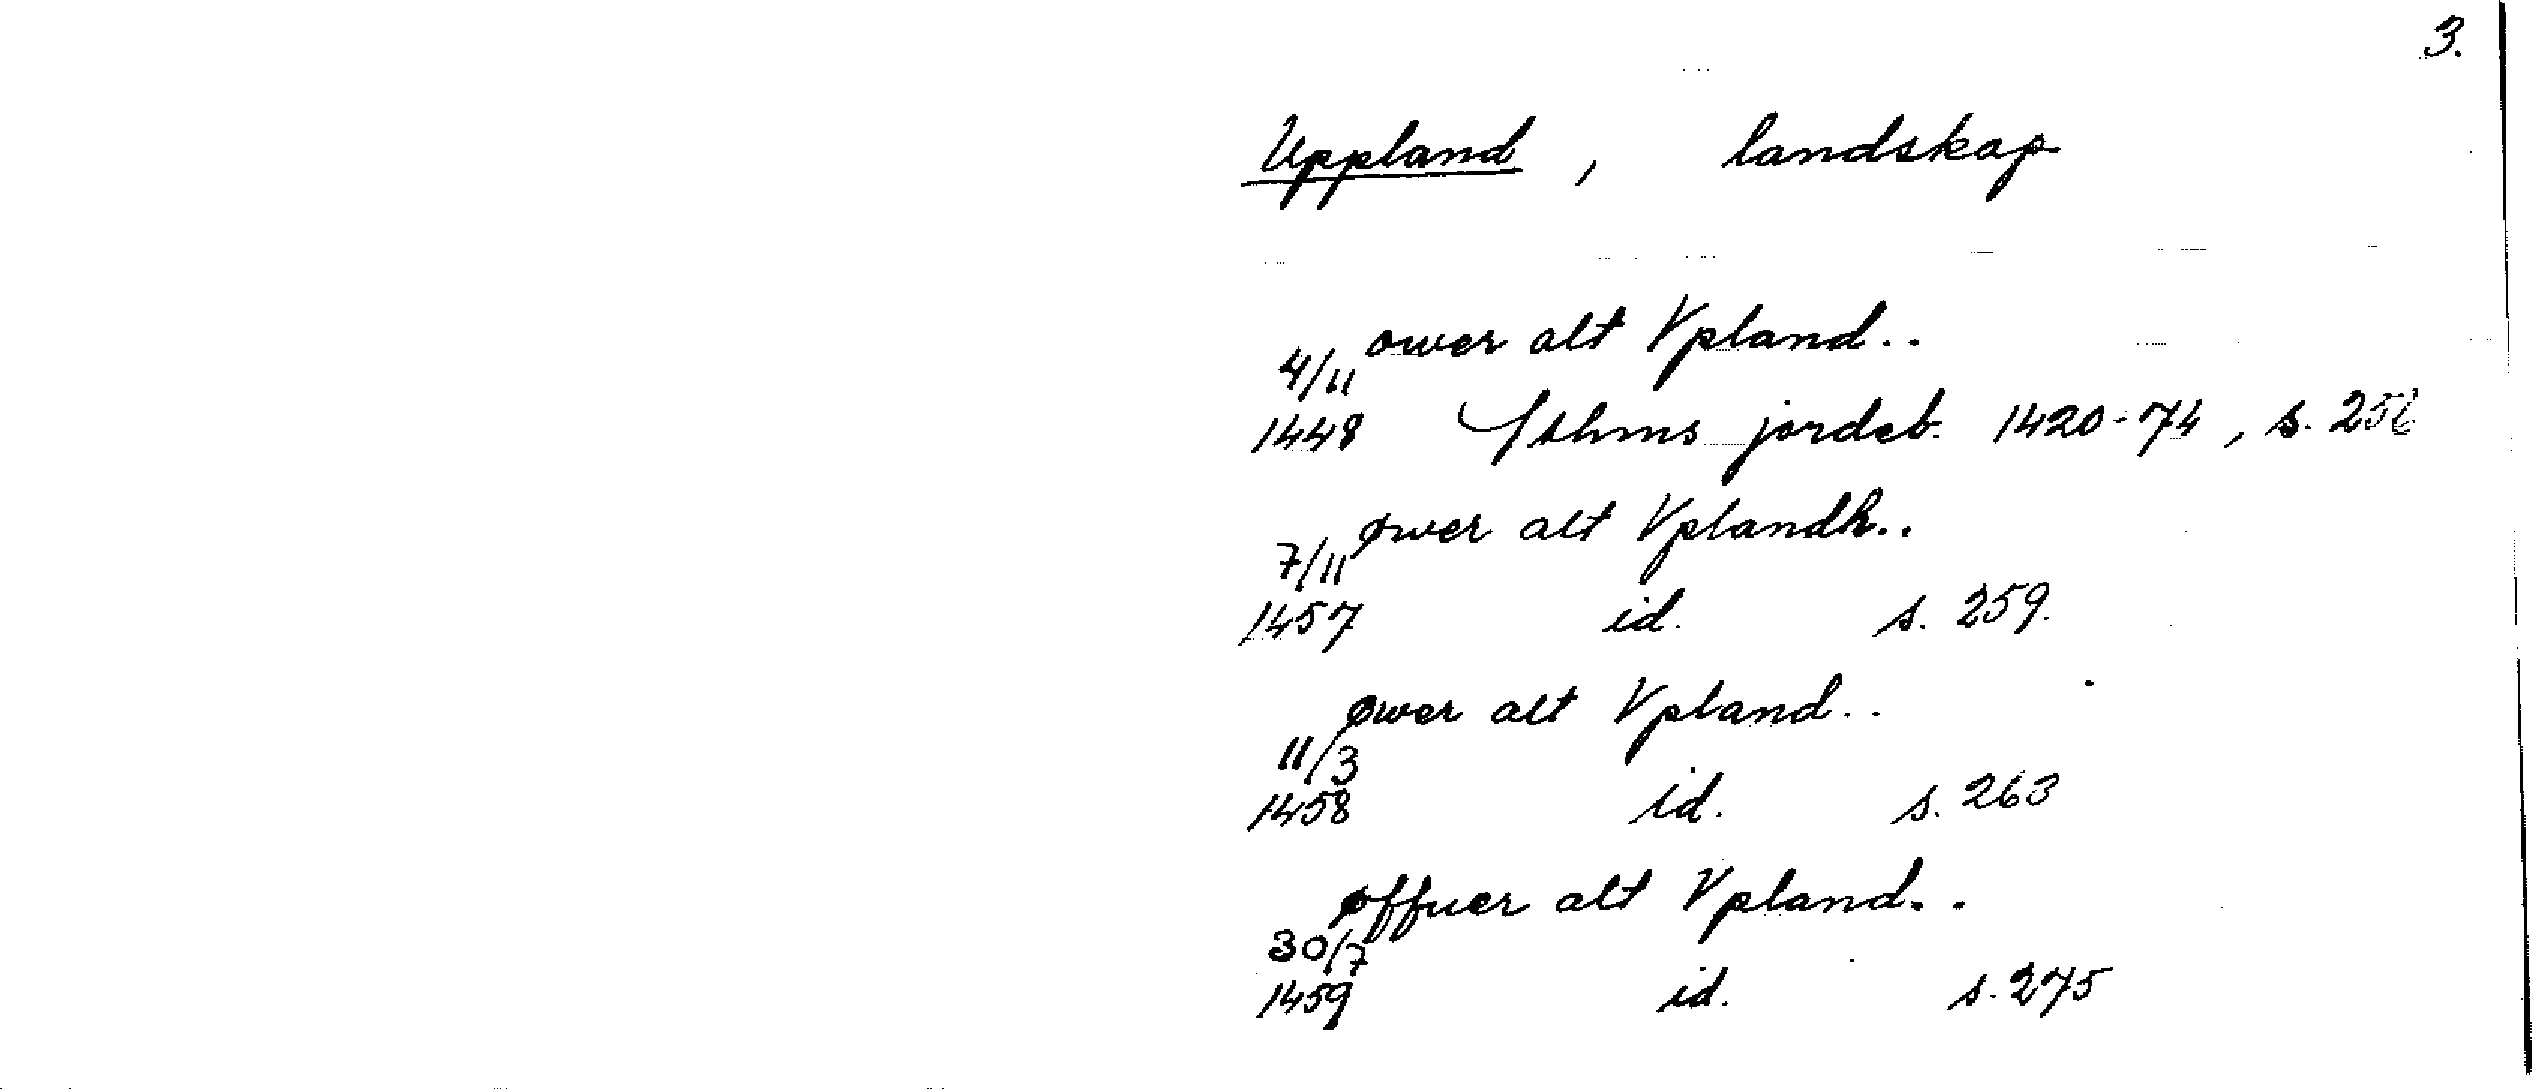 3.
Uppland, landskap
ower alt Vpland..
4/11
1448 Sthms jordeb. 1420-74, s. 256
øwer alt Vplandh..
7/11
1457 id. s. 259.
øwer alt Vpland..
11/3
1458 id. s. 263
øffuer alt Vpland..
30/7
1459 id. s. 275